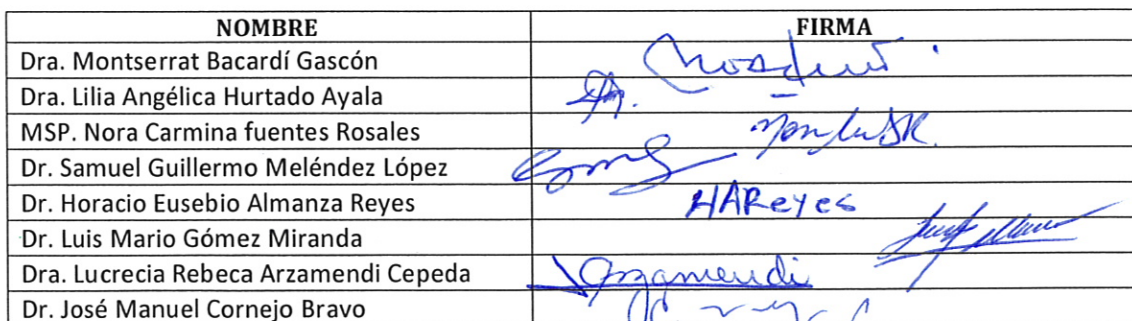 NOMBRE FIRMA
Dra. Montserrat Bacardí Gascón
Dra. Lilia Angélica Hurtado Ayala
MSP. Nora Carmina fuentes Rosales
Dr. Samuel Guillermo Meléndez López
Dr. Horacio Eusebio Almanza Reyes HAReyes
Dr. Luis Mario Gómez Miranda
Dra. Lucrecia Rebeca Arzamendi Cepeda Arzamendi
Dr. José Manuel Cornejo Bravo